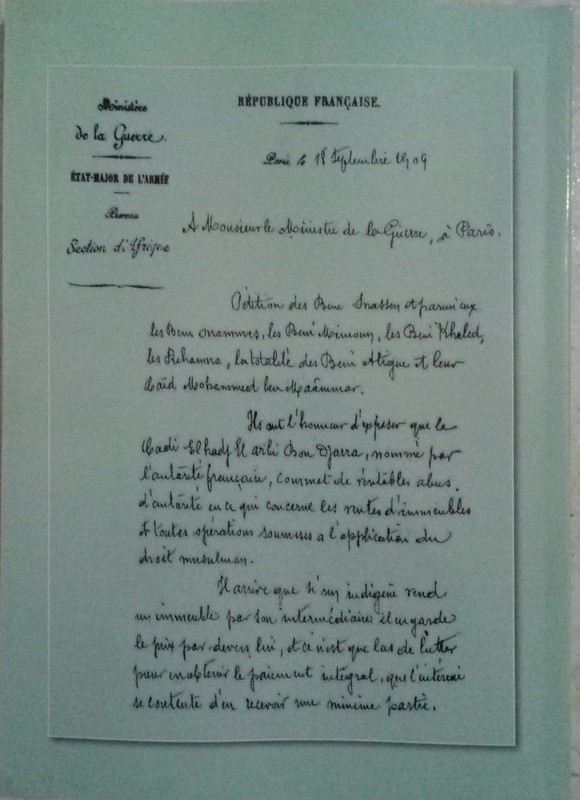 Ministère
de la Guerre.
ÉTAT-MAJOR DE L'ARMÉE
Bureau
Section d'Afrique
RÉPUBLIQUE FRANÇAISE.
Paris le 18 Septembre 1909
A Monsieur le Ministre de la Guerre, à Paris.
Pétition des Beni Snassen et parmi eux
les Beni Mimoun, les Beni Khaled,
les Rehamna, la totalité des Beni Attigue et leur
Caïd Mohammed ben Maâmmar.
Ils ont l'honneur d'exposer que le
Cadi El hadj El arbi Bou Djarra, nommé par
l'autorité française, commet de véritables abus
d'autorité en ce qui concerne les ventes d'immeubles
et toutes opérations soumises a l'application du
droit musulman.
Il arrive que si un indigène vend
un immeuble par son intermédiaire il en garde
le prix par devers lui, et ce n'est que las de lutter
pour en obtenir le paiement intégral, que l'intéressé
se contente d'en recevoir une minime partie.